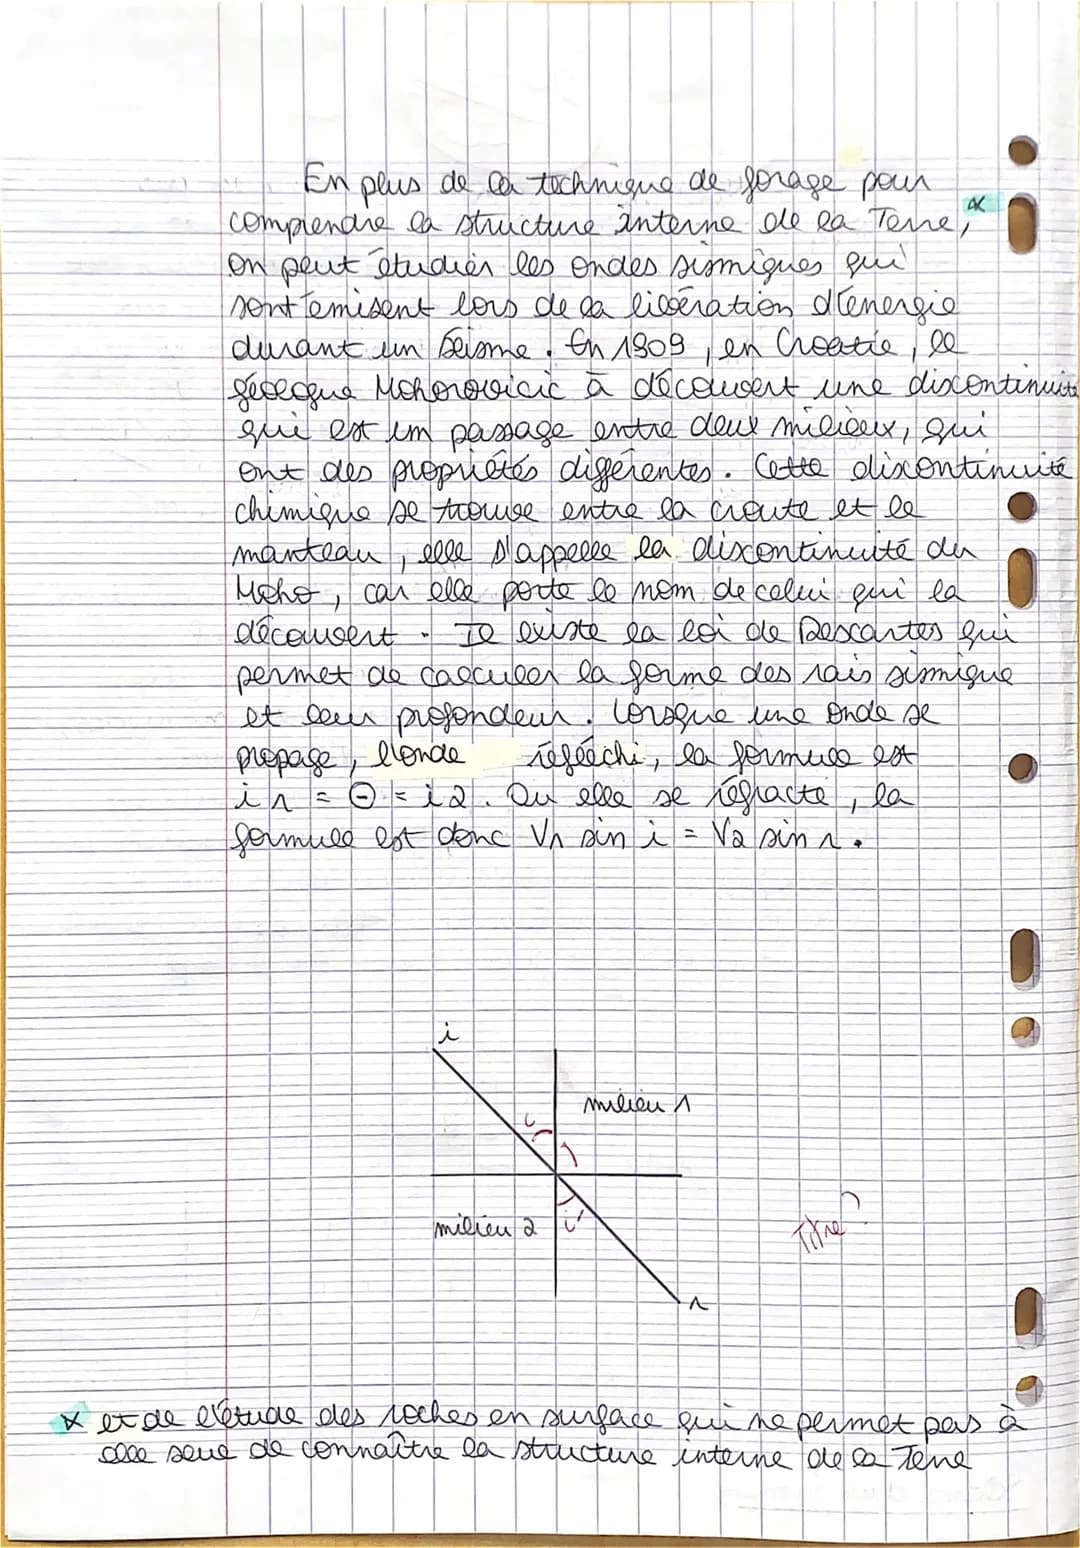 En plus de la technique de forage pour
comprendre la structure interne de la Terre, ×
on peut étudier les ondes sismiques qui
sont émisent lors de la libération d'énergie
durant un séisme. En 1909, en Croatie, le
géologue Mohorovicic à découvert une discontinuité
qui est un passage entre deux milieux, qui
ont des propriétés différentes. Cette discontinuité
chimique se trouve entre la croute et le
manteau, elle s'appelle la discontinuité du
Moho, car elle porte le nom de celui qui la
découvert. Il existe la loi de Descartes qui
permet de calculer la forme des rais sismique
et leur profondeur. Lorsque une onde se
propage, l'onde réfléchi, la formule est
i1 = ⊖ = i2. Ou elle se réfracte, la
formule est donc V1 sin i = V2 sin r.
i
milieu 1
i
milieu 2
i'
Titre ?
r
× et de l'étude des roches en surface qui ne permet pas à
elle seule de connaître la structure interne de la Terre